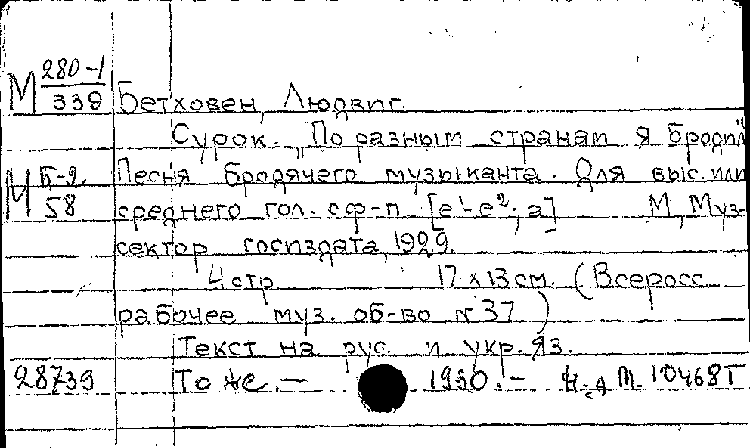 М 280-1/339 Бетховен, Людвиг.
Сурок. „По разным странам я бродил"
Песня бродячего музыканта. Для выс. или
М Б-9./58 среднего гол. с ф-п. [e¹-e²; a] М., Муз-
сектор госиздата, 1929.
4 стр. 17 х 13 см. (Всеросс.
рабочее муз. об-во № 37)
Текст на рус. и укр. яз.
28739 То же. — 1930. — Н.д. М. 10468 Г